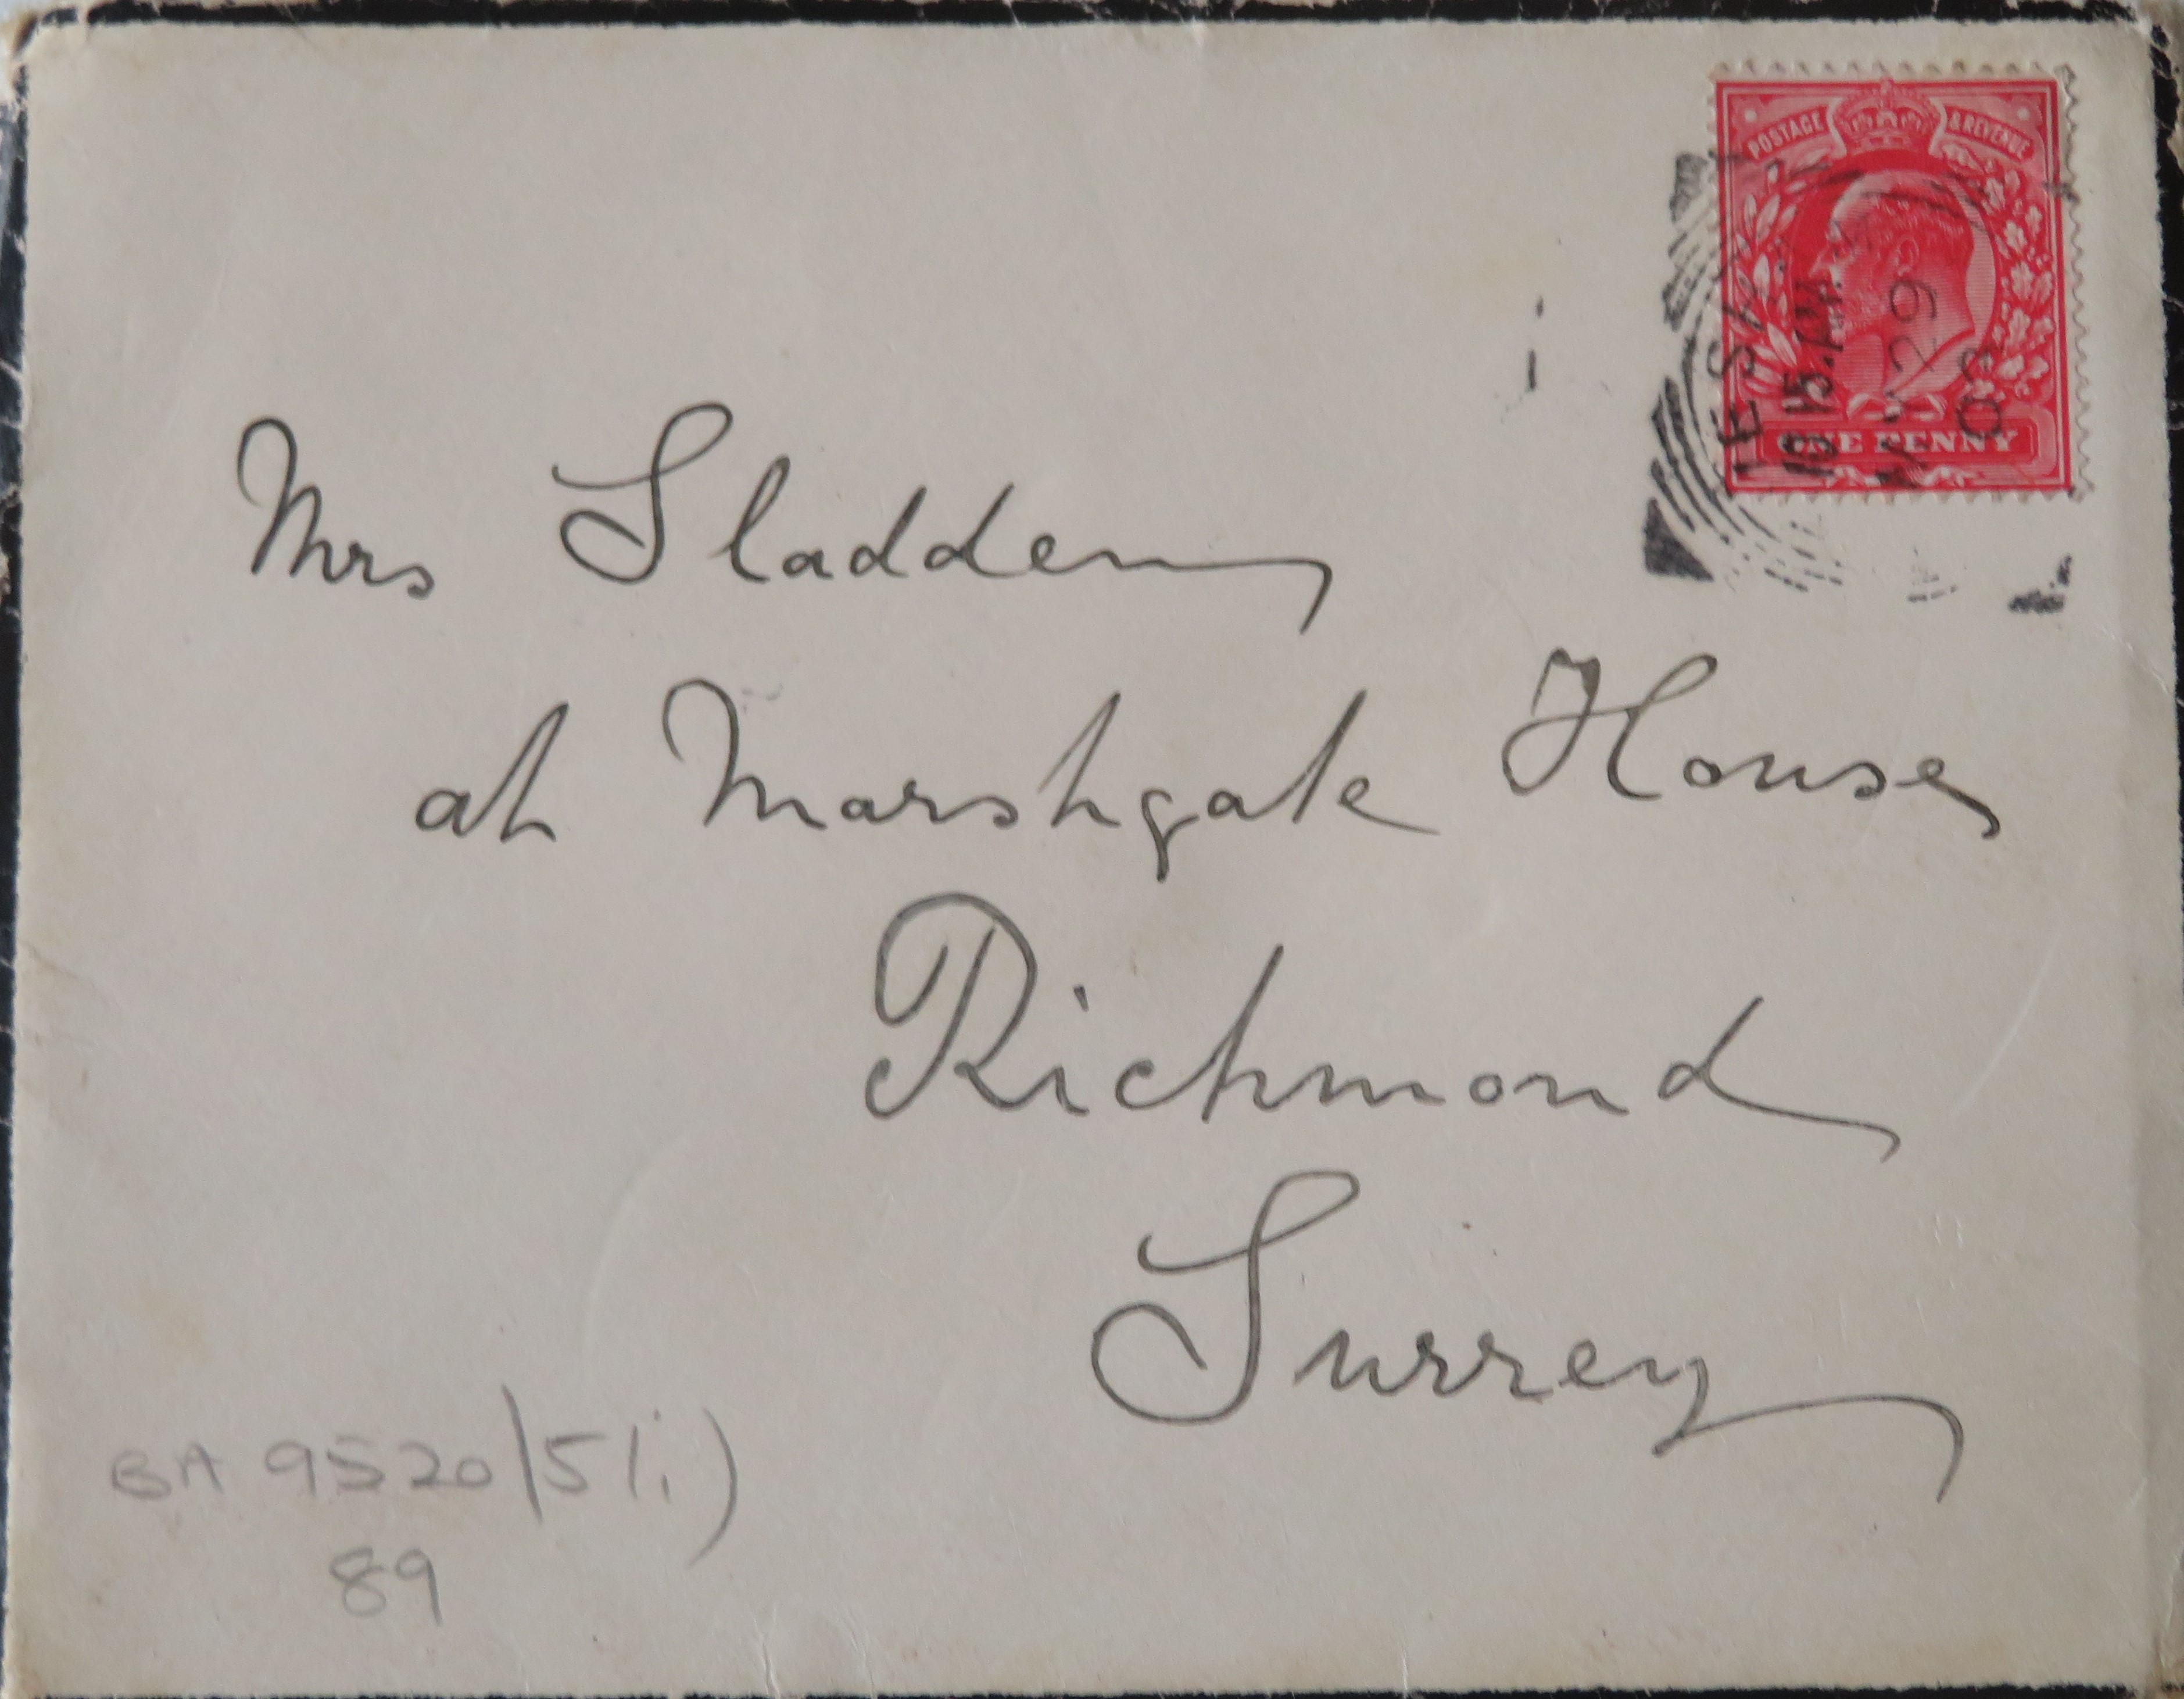 POSTAGE & REVENUE
ONE PENNY
10 15 AM
MY 29
03
Mrs Sladden
at Marshgate House
Richmond
Surrey
BA 9520/5(i)
89